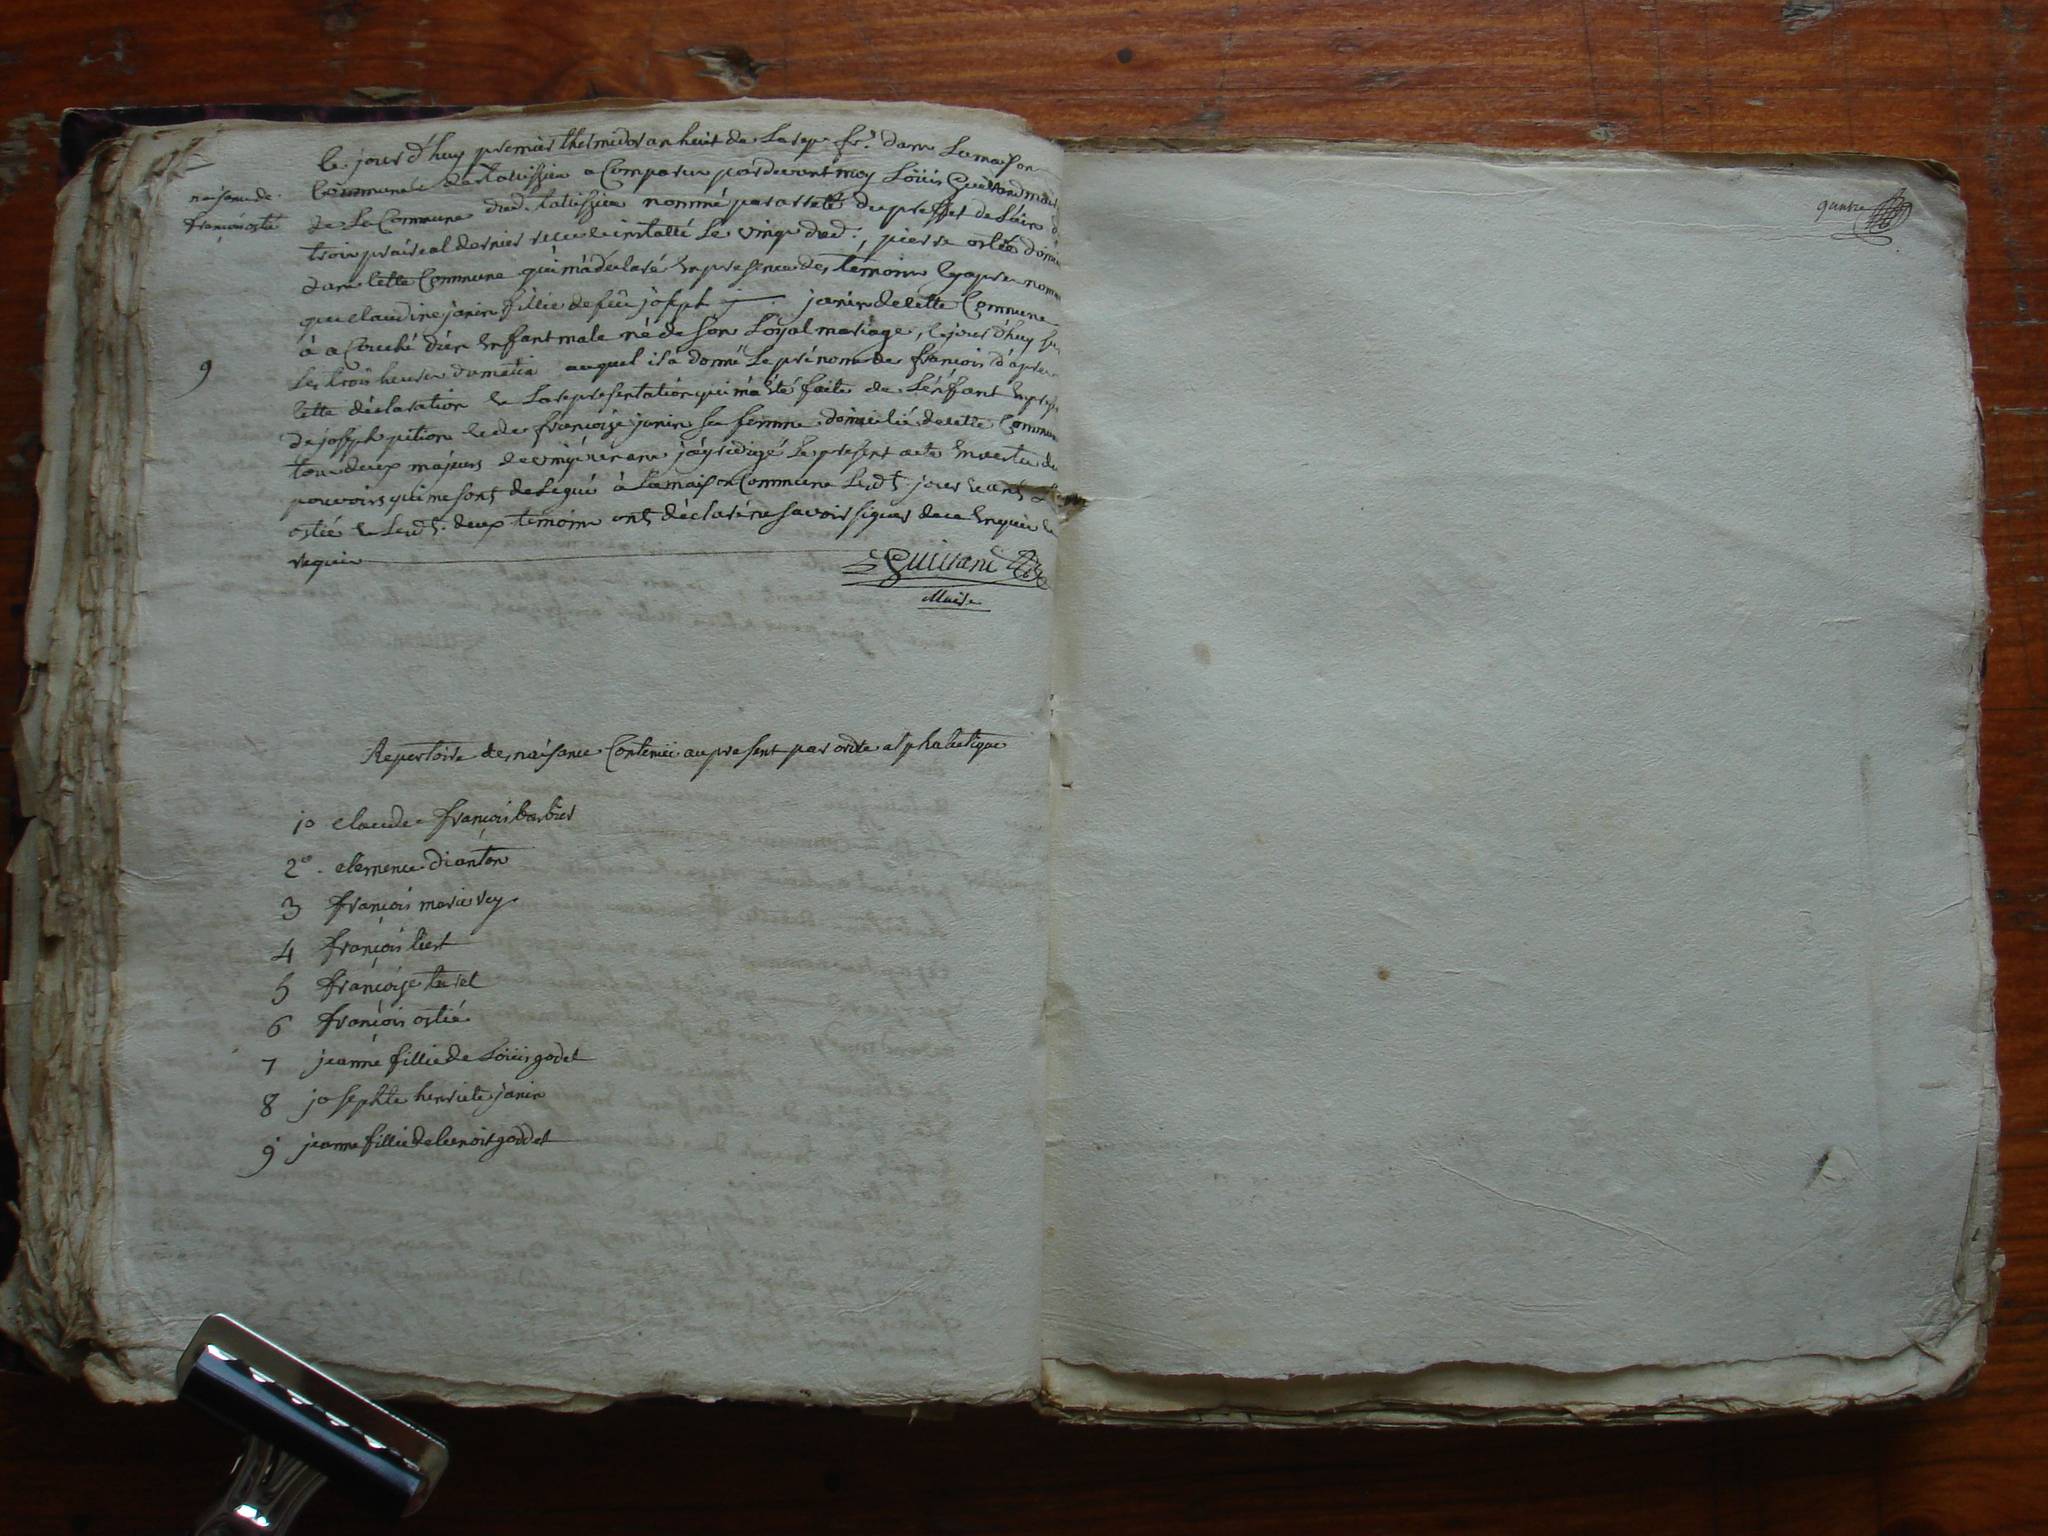 le jour d'huy premier thermidor an huit de la rep. fr.e dans la maison
naisance de
françois ostié
Commune a Comparu pardevant moy Loüis Guilland maire
de la Commune nommé par arreté du prefet de L'ain
trois prairéal dernier installé le vingt dud. ; pierre ostié
dans cette Commune qui m'a declaré en presence des témoins cy apres
que claudine janin fillie de feu joseph janin de cette Commune
9
à a Couché d'un enfant male né de son loyal mariage, le jour d'huy
les trois heures du matin auquel il a donné le prénom de françois d'apres
cette déclaration & la representation qui m'a été faite de L'enfant
de joseph pition & de françoise janin sa femme domicilié de cette Commune
tous deux majeurs de vingt un ans j'ay redigé le present acte en vertu des
pouvoirs qui me sont delegué à la maison Commune led.t jour & an
ostié & lesd.t deux témoins ont déclaré ne savoir signer de ce enquis &
requis
Guilland
Maire
Repertoire de naisance Contenü au present par ordre alphabetique
1o claude françois barbier
2o. clemence dianton
3 françois marie rey
4 françois
5 françoise
6 françois ostié
7 jeanne fillie de Loüis godet
8 josephte henriete janin
9 jeanne fillie de benoit goddet